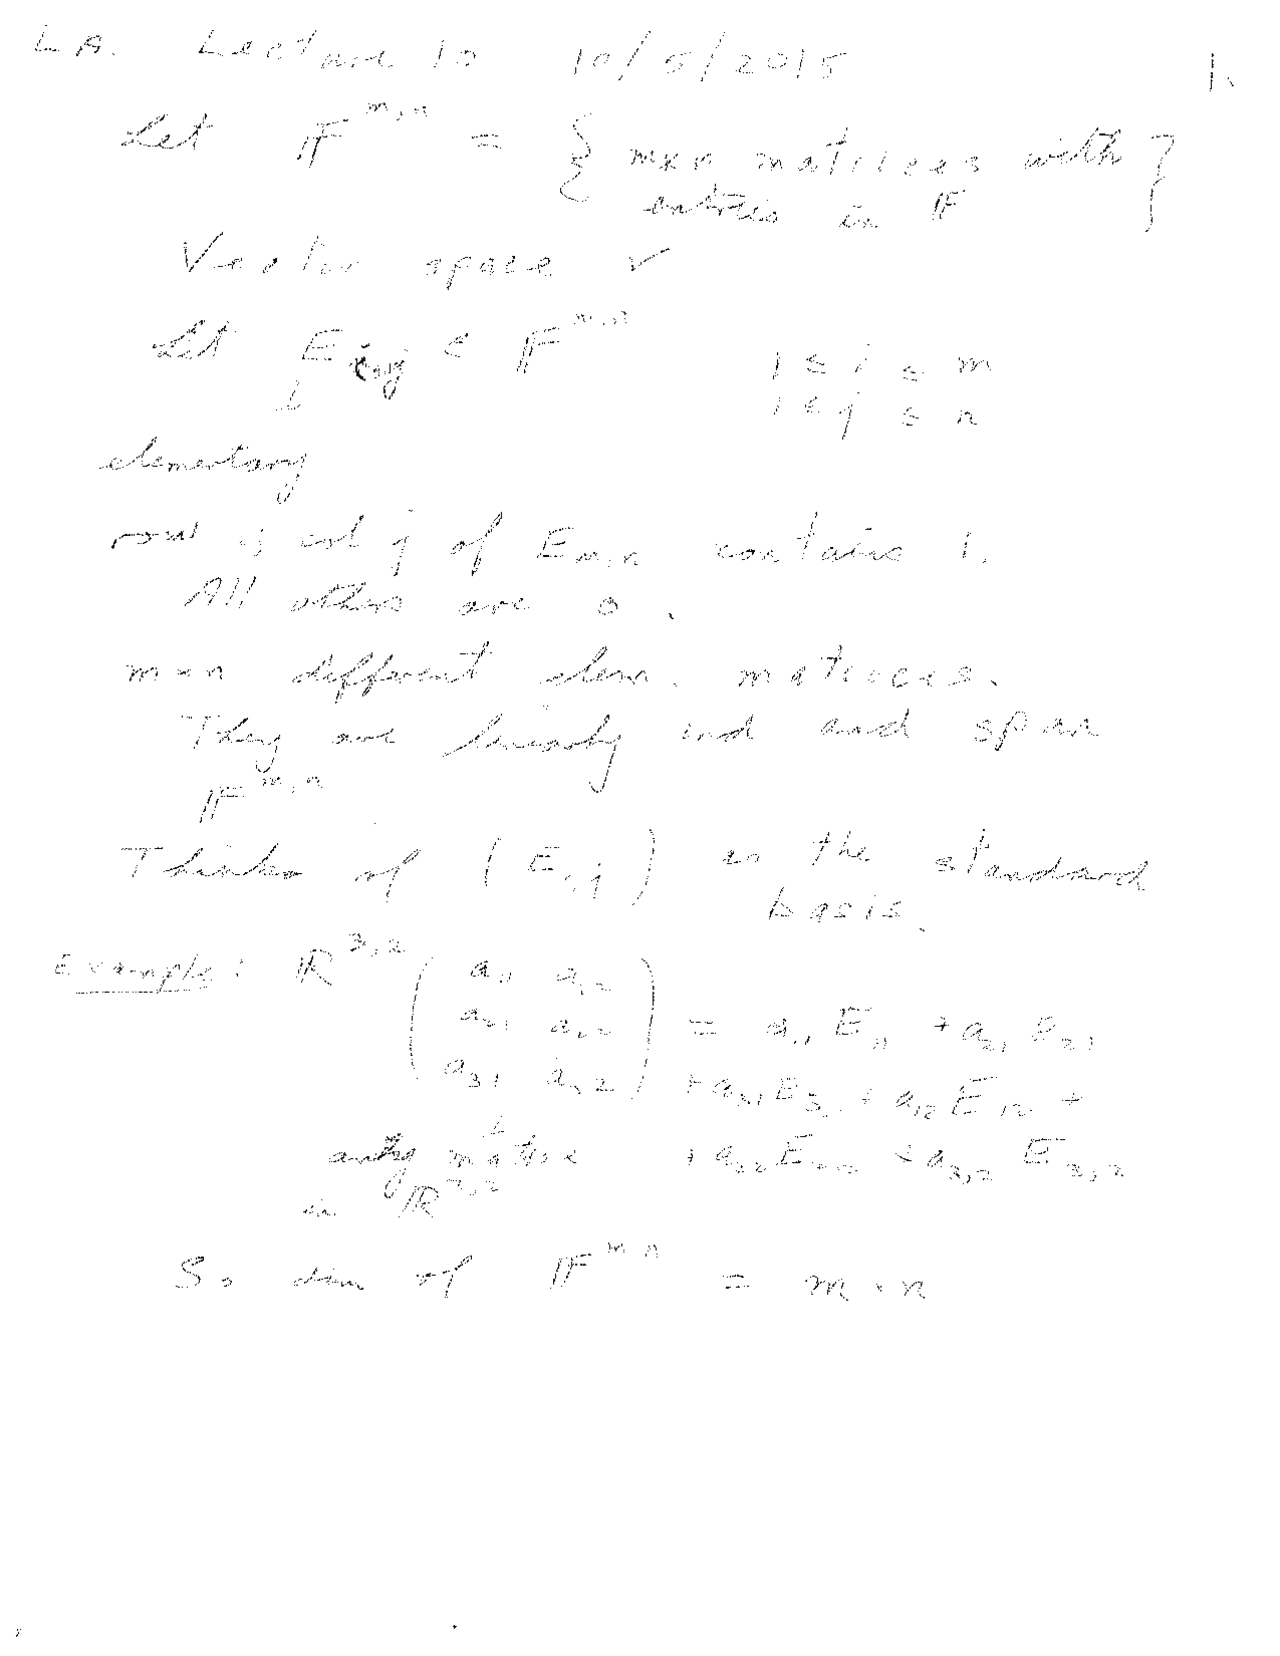 L A. Lecture 10 10/5/2015 1.
Let 𝔽^{m,n} = { m×n matrices with
entries in 𝔽 }
Vector space ✓
Let E_{i,j} ∈ 𝔽^{m,n} 1 ≤ i ≤ m
↓ 1 ≤ j ≤ n
elementary
row i, col j of E_{m,n} contains 1.
All others are 0.
m×n different elem. matrices.
They are linearly ind and span
𝔽^{m,n}
Think of (E_{i,j}) as the standard
basis.
Example: ℝ^{3,2}
( a_{11} a_{12}
a_{21} a_{22} ) = a_{11} E_{11} + a_{21} E_{21}
a_{31} a_{32} + a_{31} E_{31} + a_{12} E_{12} +
any matrix + a_{22} E_{22} + a_{3,2} E_{3,2}
in ℝ^{3,2}
So dim of 𝔽^{m,n} = m·n